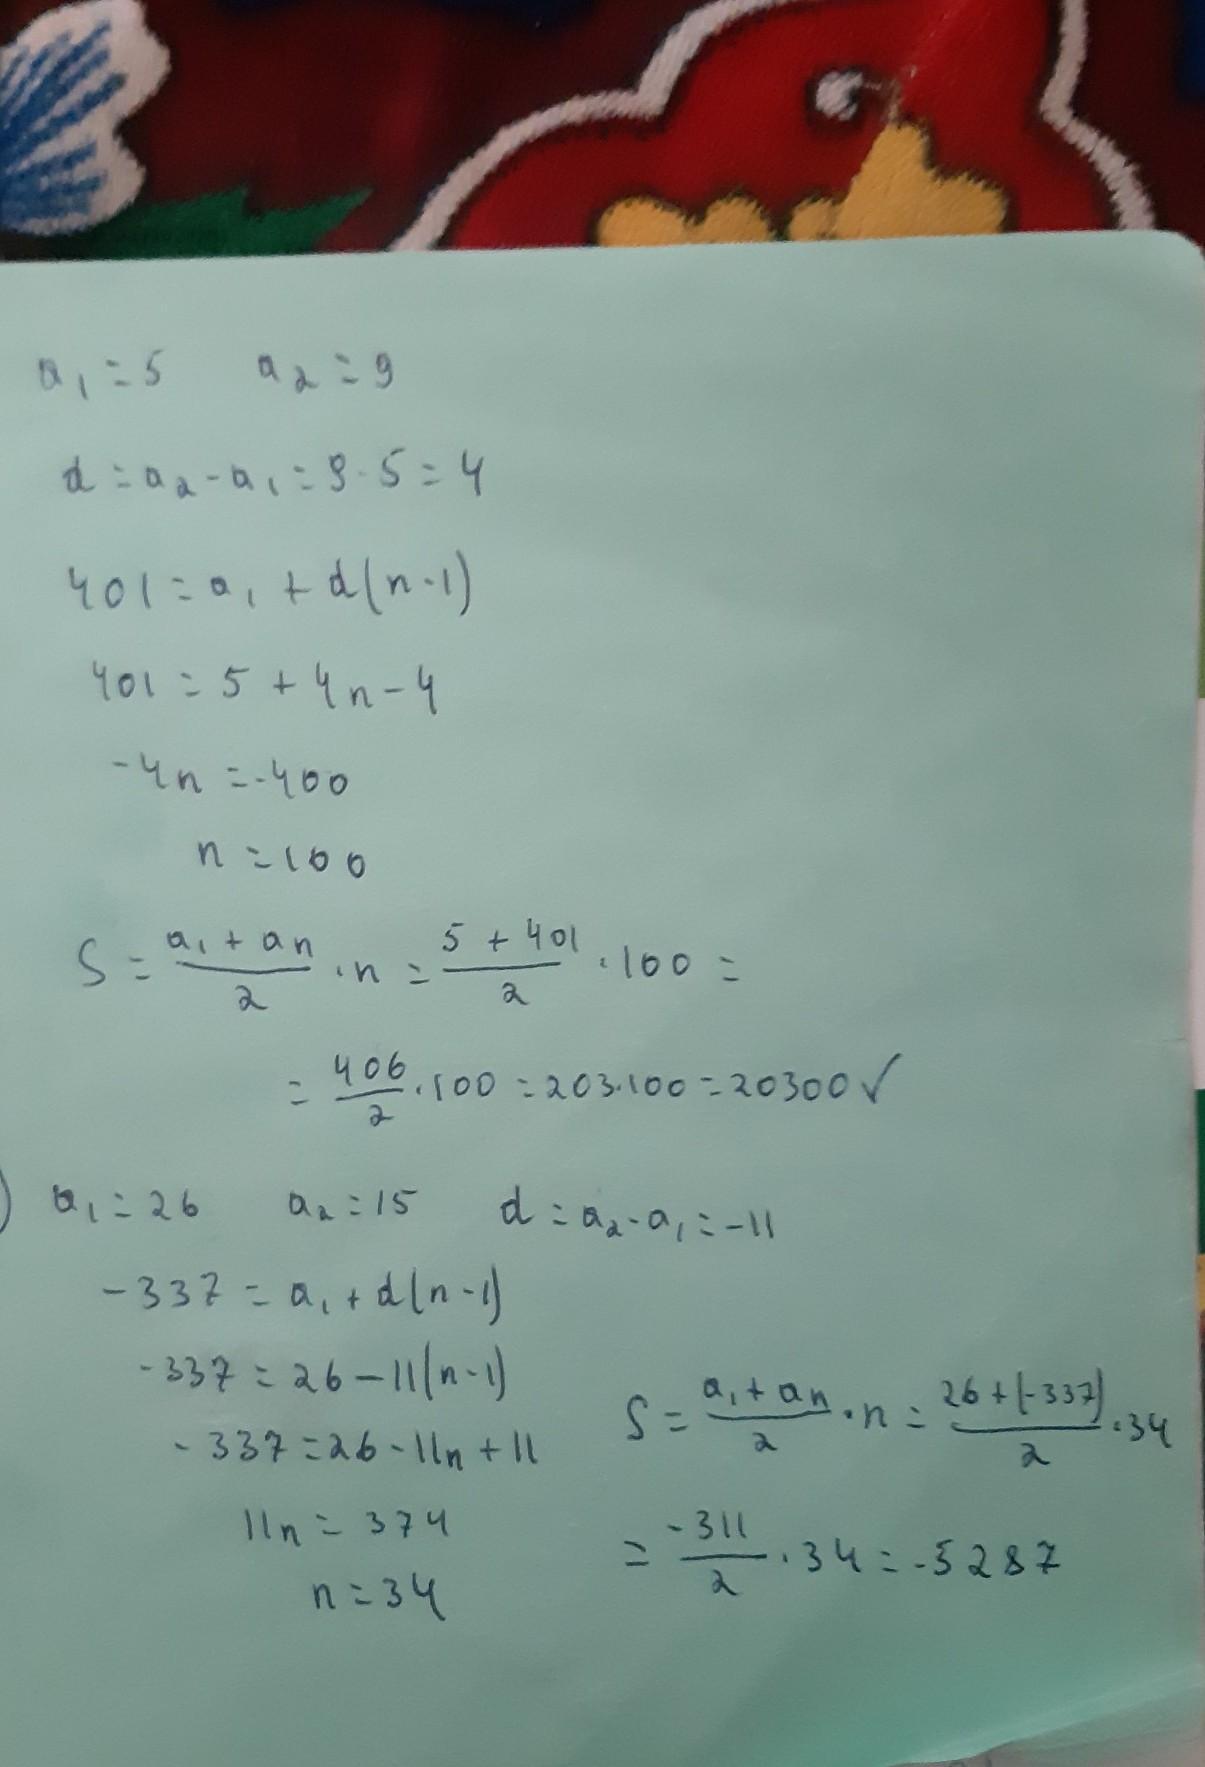 a₁ = 5 a₂ = 9
d = a₂ - a₁ = 9 - 5 = 4
401 = a₁ + d(n-1)
401 = 5 + 4n - 4
-4n = -400
n = 100
S = (a₁ + an)/2 · n = (5 + 401)/2 · 100 =
= 406/2 · 100 = 203·100 = 20300 ✓
) a₁ = 26 a₂ = 15 d = a₂ - a₁ = -11
-337 = a₁ + d(n-1)
-337 = 26 - 11(n-1)
-337 = 26 - 11n + 11
11n = 374
n = 34
S = (a₁ + an)/2 · n = (26 + (-337))/2 · 34
= -311/2 · 34 = -5287